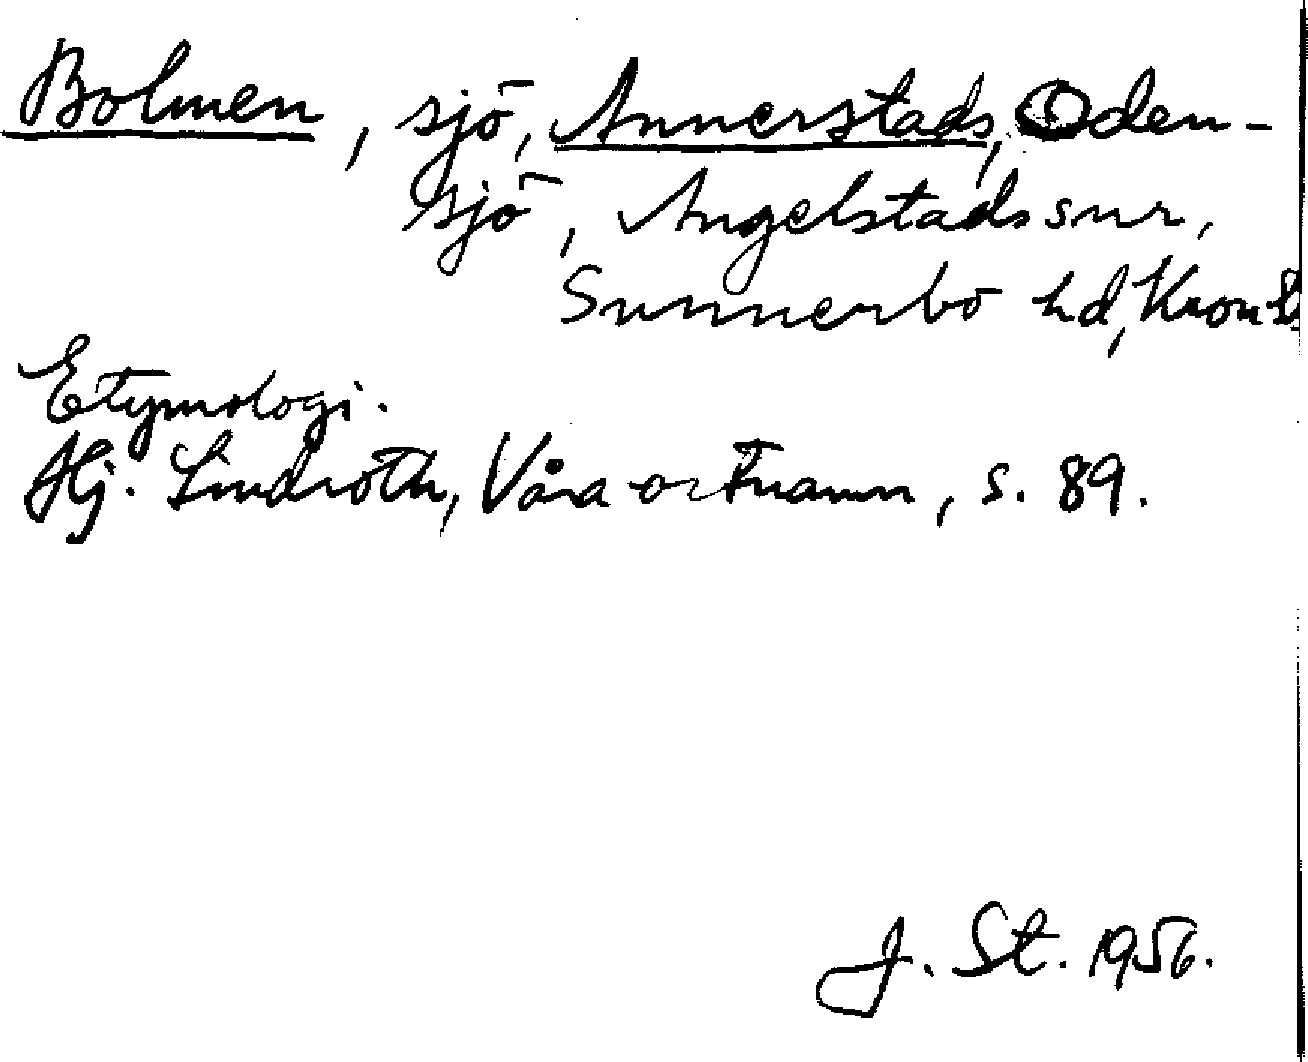 Bolmen, sjö, Annerstads, Oden-
sjö, Angelstads snr,
Sunnerbo hd, Kron.
Etymologi.
Hj. Lindroth, Våra ortnamn, s. 89.
J. St. 1956.